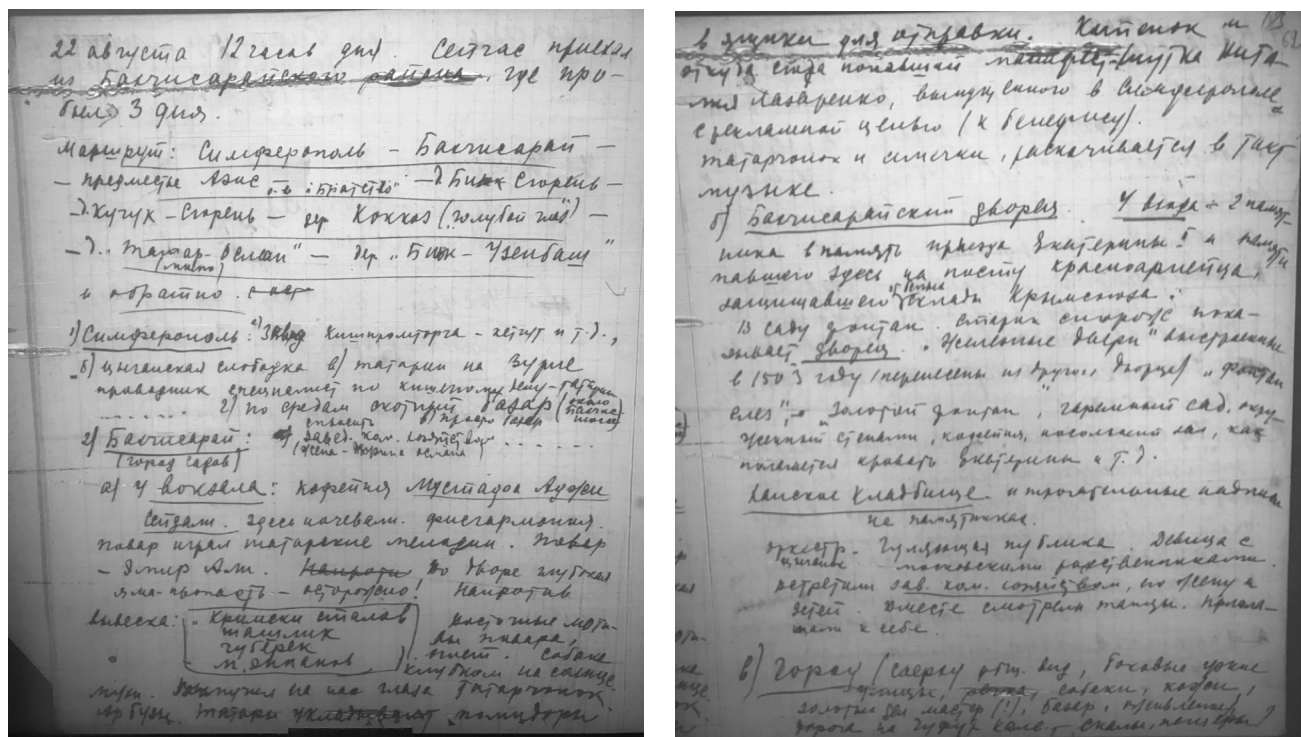 22 августа 12 часов дня. Сейчас приехал
из Бахчисарайского района, где про-
был 3 дня.
Маршрут: Симферополь – Бахчисарай –
– предместье Азис – "Братство" – д. Биюк Сюрень –
– д. Кучук – Сюрень – дер Коккоз (голубой глаз) –
– д. "Татар-Османкой" – дер "Биюк-Узенбаш"
и обратно.
1) Симферополь: а) Завод Химпромторга – кетгут и т.д.,
б) цыганская слободка в) татарин на зурне
2) по средам скотный базар
2) Бахчисарай: завед. ком. хозяйством
(город садов)
а) У вокзала: кофейня Мустафа Аджи
Сеидали. Здесь ночевали. Фисгармония.
Повар играл татарские мелодии. Повар
– Эмир Али. Напротив Во дворе глубокая
яма-пропасть – осторожно! Напротив
вывеска: "Кримски сталов
шашлик
чуберек
восточные моти-
вы повара,
поет. Собака
клубком на солнце.
мухи. на нас глаза татарчонок.
Арбузы. Татары укладывают помидоры
в ящики для отправки. Котенок и
откуда сюда попавший манифест-шутка Вита-
лия Лазаренко, выпущенного в Симферополе
с рекламной целью (к бенефису).
Татарчонок и семечки, раскачивается в такт
музыке.
б) Бахчисарайский дворец. У входа – 2 памят-
ника в память приезда Екатерины II и
павшего здесь на посту красноармейца,
защищавшего склады Крымсоюза.
В саду фонтан. Старик сторож пока-
зывает дворец. "Железные двери" выстроенные
в 1503 году (перенесены из другого дворца) "Фонтан
слез", "Золотой фонтан", гаремный сад, окру-
женный стенами, кофейня, посольский зал, как
полагается кровать Екатерины и т.д.
Ханское кладбище и трогательные надписи
на памятниках.
Оркестр. Гуляющая публика. Девица с
московскими родственниками.
Встретили зав. ком. хозяйством, его жену и
детей. Вместе смотрели танцы. Пригла-
шали к себе.
в) Город (сверху общ. вид, боковые узкие
улицы, собаки, кофейни,
золотых дел мастер (!), базар, оживление,
дорога на Чуфут кале, – скалы, пещеры)